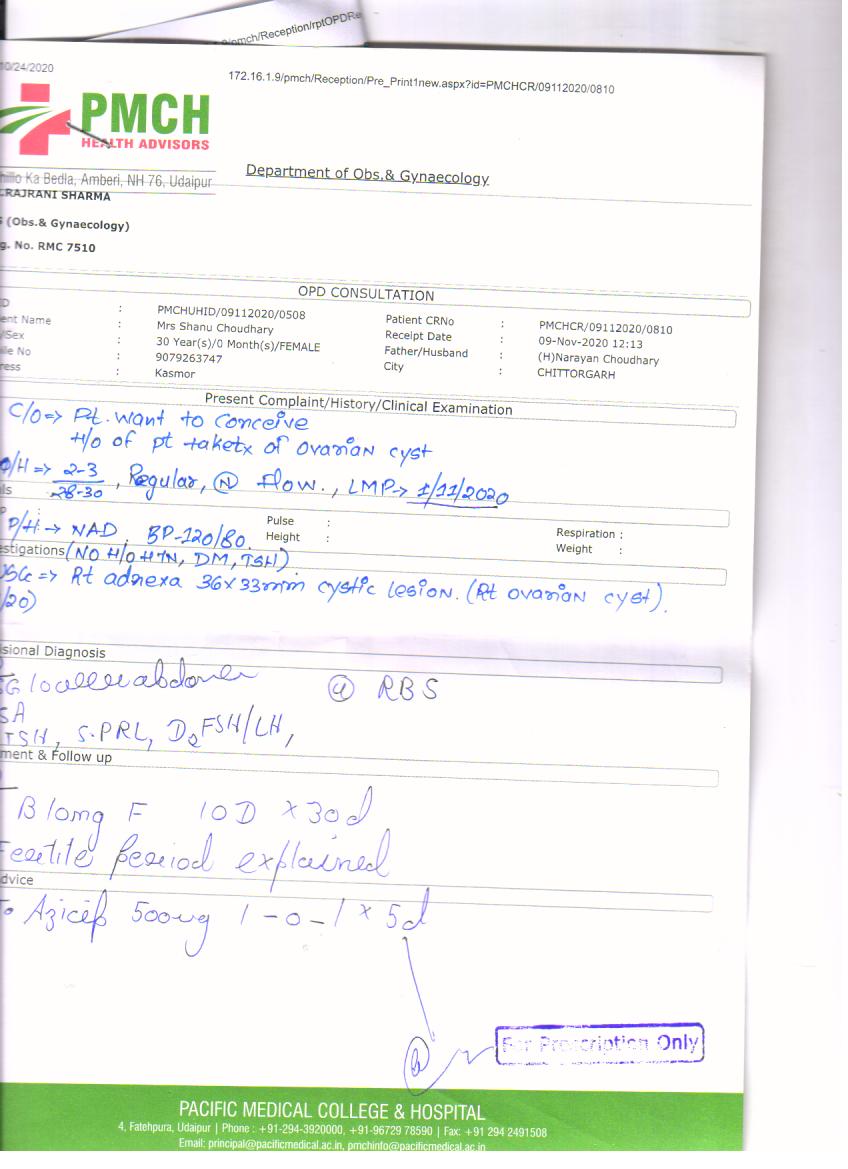 pmch/Reception/rptOPDRe
10/24/2020
172.16.1.9/pmch/Reception/Pre_Print1new.aspx?id=PMCHCR/09112020/0810
PMCH
HEALTH ADVISORS
Ka Bedla, Amberi, NH 76, Udaipur
Department of Obs.& Gynaecology
RAJRANI SHARMA
(Obs.& Gynaecology)
g. No. RMC 7510
OPD CONSULTATION
D : PMCHUHID/09112020/0508 Patient CRNo : PMCHCR/09112020/0810
ent Name : Mrs Shanu Choudhary Receipt Date : 09-Nov-2020 12:13
/Sex : 30 Year(s)/0 Month(s)/FEMALE Father/Husband : (H)Narayan Choudhary
ile No : 9079263747 City : CHITTORGARH
ress : Kasmor
Present Complaint/History/Clinical Examination
C/O => Pt. want to conceive
H/o of pt taketx of ovarian cyst
O/H => 2-3/28-30, Regular, (N) flow., LMP-> 1/11/2020
als
P : Pulse : Respiration :
P/H -> NAD BP-120/80. Height : Weight :
estigations (NO H/O HTN, DM, TSH)
USG => Rt adnexa 36x33mm cystic lesion. (Rt ovarian cyst).
/20)
sional Diagnosis
abdomen RBS
TSH, S.PRL, D2 FSH/LH,
ment & Follow up
10D x 30d
Fertile period explained
dvice
500mg 1-0-1 x 5d
For Prescription Only
PACIFIC MEDICAL COLLEGE & HOSPITAL
4, Fatehpura, Udaipur | Phone : +91-294-3920000, +91-96729 78590 | Fax: +91 294 2491508
Email: principal@pacificmedical.ac.in, pmchinfo@pacificmedical.ac.in